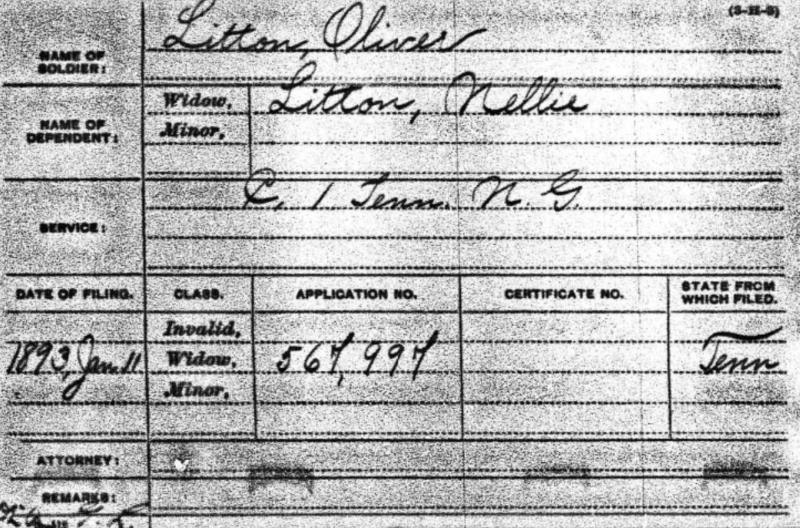 (3-H-3)
NAME OF SOLDIER: Litton, Oliver
NAME OF DEPENDENT: Widow, Litton, Nellie
Minor,
SERVICE: C, 1 Tenn. N. G.
DATE OF FILING. CLASS. APPLICATION NO. CERTIFICATE NO. STATE FROM WHICH FILED.
Invalid,
1893, Jan. 11 Widow, 567,997 Tenn
Minor,
ATTORNEY:
REMARKS: